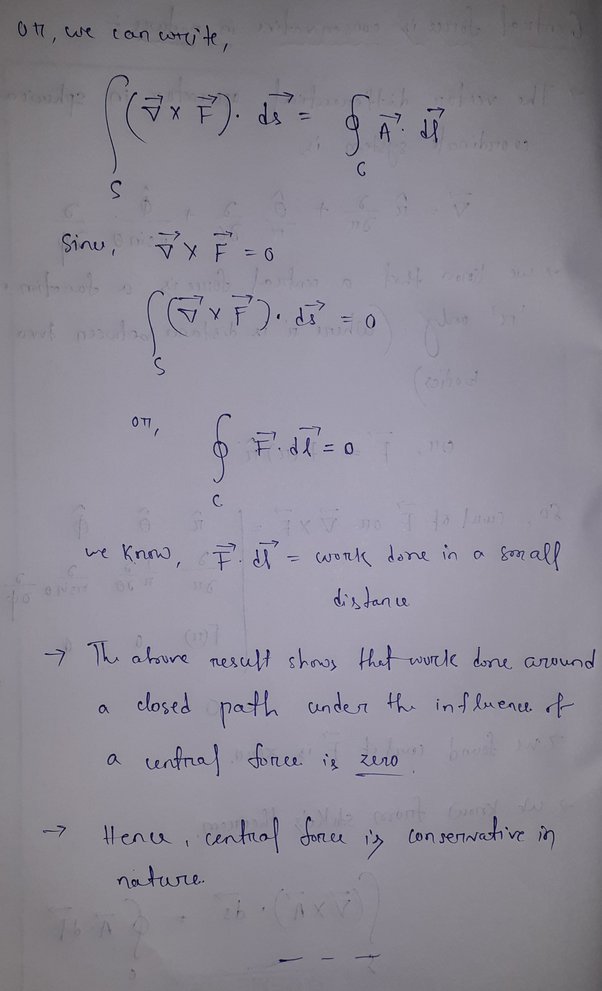 or, we can write,
∫_S (∇⃗ × F⃗). ds⃗ = ∮_C A⃗. dl⃗
Since, ∇⃗ × F⃗ = 0
∫_S (∇⃗ × F⃗). ds⃗ = 0
or, ∮_C F⃗. dl⃗ = 0
we know, F⃗. dl⃗ = work done in a small
distance
→ The above result shows that work done around
a closed path under the influence of
a central force is zero.
→ Hence, central force is conservative in
nature.